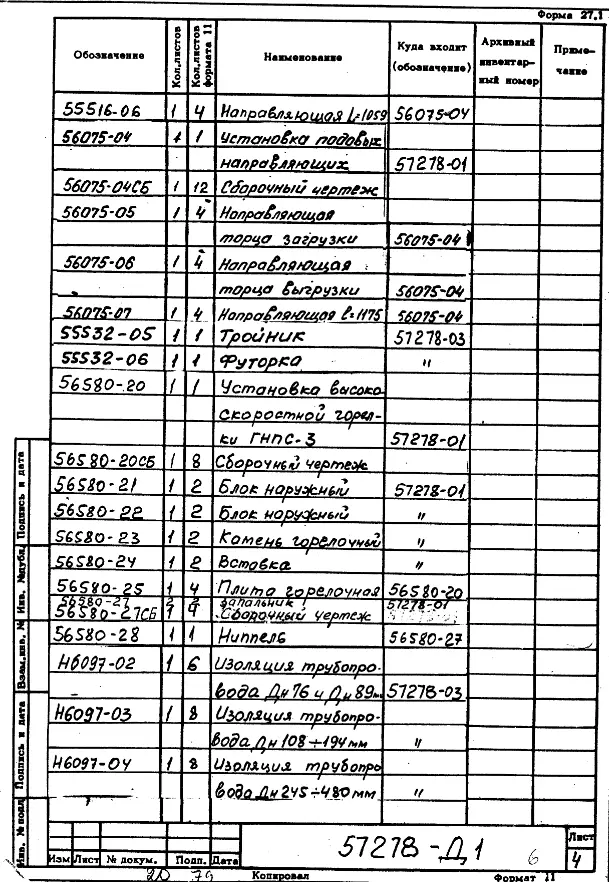 Форма 27.1
Обозначение Кол.листов Кол.листов формата 11 Наименование Куда входит (обозначение) Архивный инвентар- ный номер Приме- чание
55516-06 1 4 Направляющая L=1059 56075-04
56075-04 1 1 Установка подовых
направляющих 57278-01
56075-04СБ 1 12 Сборочный чертеж
56075-05 1 4 Направляющая
торца загрузки 56075-04
56075-06 1 4 Направляющая
торца выгрузки 56075-04
56075-07 1 4 Направляющая ℓ=1175 56075-04
55532-05 1 1 Тройник 57278-03
55532-06 1 1 Футорка "
56580-20 1 1 Установка высоко-
скоростной горел-
ки ГНПС-3 57278-01
56580-20СБ 1 8 Сборочный чертеж
56580-21 1 2 Блок наружный 57278-01
56580-22 1 2 Блок наружный "
56580-23 1 2 Камень горелочный "
56580-24 1 2 Вставка "
56580-25 1 4 Плита горелочная 56580-20
56580-27 запальник 57278-01
56580-27СБ 1 4 Сборочный чертеж
56580-28 1 1 Ниппель 56580-27
Н6097-02 1 6 Изоляция трубопро-
вода Дн 76 и Дн 89мм 57278-03
Н6097-03 1 8 Изоляция трубопро-
вода Дн 108÷194мм "
Н6097-04 1 8 Изоляция трубопро
вода Дн 245÷480мм "
Подпись и дата
Инв. №дубл.
Взам.инв. №
Подпись и дата
Инв. №подл
Изм Лист № докум. Подп. Дата
57278-Д1 6
Лист
4
20 79 Копировал Формат 11